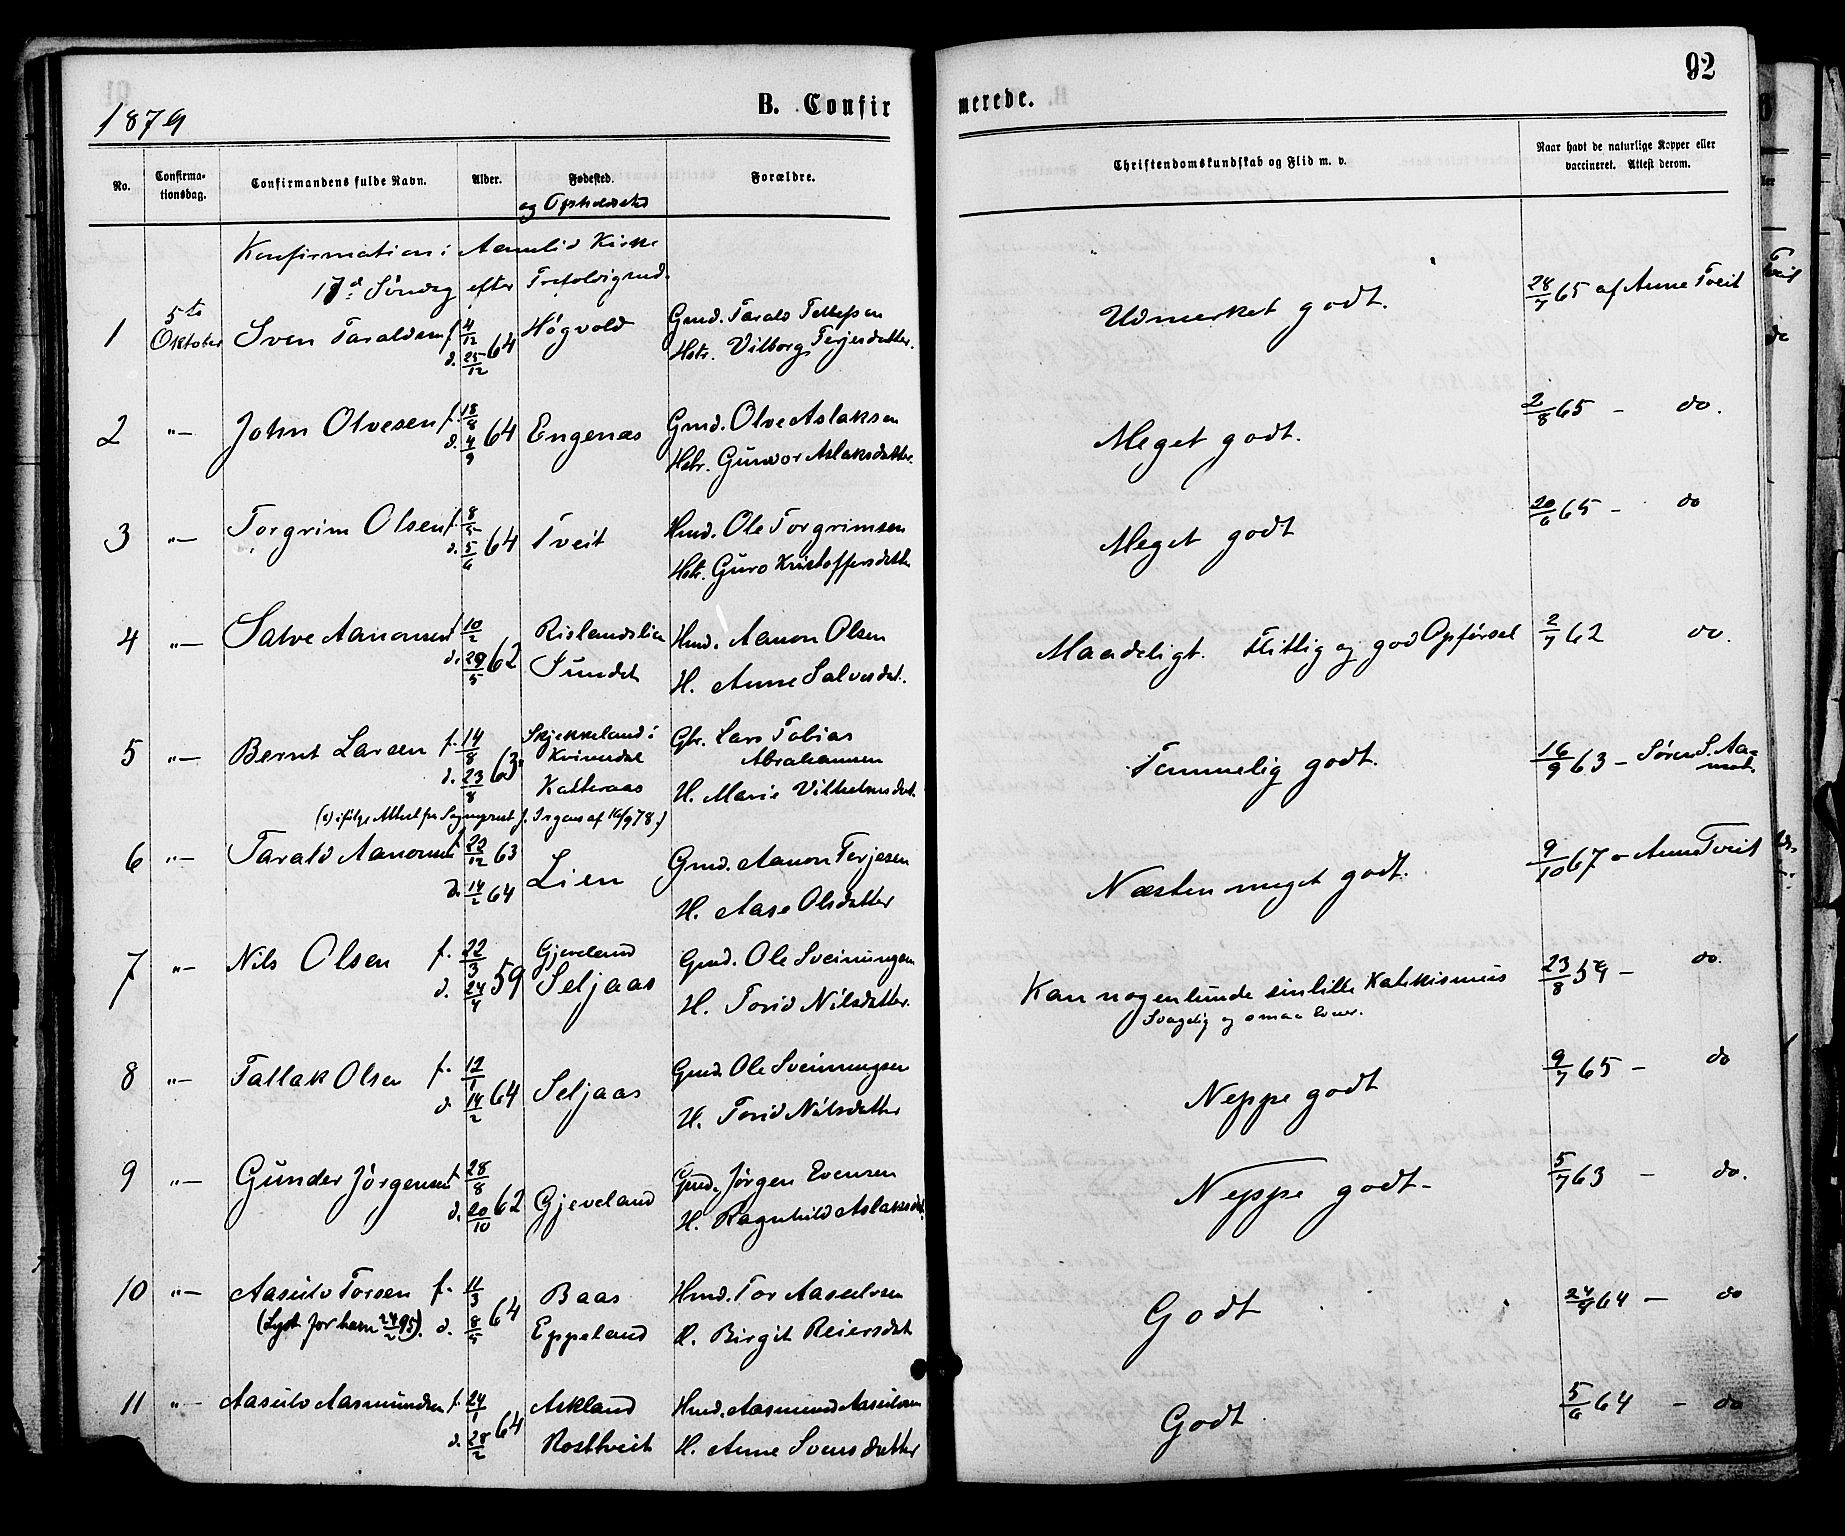 92
1879
B. Confirmerede.
No.
Confirmationsdag.
Confirmandens fulde Navn.
Alder.
Fødested.
og Opholdssted
Forældre.
Christendomskundskab og Flid m. v.
Naar havt de naturlige Kopper eller vaccineret. Attest derom.
Konfirmation i Aamlid Kirke
17de Søndag efter Trefoldighed.
1 5te Oktober Sven Taraldsen f. 4/12 d. 25/12 64 Høgvold Gmd. Tarald Tellefsen
Hstr. Vilborg Terjesdatter.
Udmerket godt. 28/7 65 af Anne Tveit
2 "— John Olvesen f. 18/8 d. 4/9 64 Engenæs Gmd. Olve Aslaksen
Hstr. Gunvor Aslaksdatter.
Meget godt. 2/8 65 — do.
3 "— Torgrim Olsen f. 8/5 d. 5/6 64 Tveit Hmd. Ole Torgrimsen
Hstr. Guro Kristoffersdatter
Meget godt 20/6 65 — do
4 "— Salve Aanonsen f. 10/2 d. 29/5 62 Rislandslien Hmd. Aanon Olsen
Sundet H. Anne Salvesdat.
Maadeligt. Flittig og god Opførsel 2/7 62 do.
5 "— Bernt Larsen f. 14/8 d. 23/8 63 Skjekkeland i Gbr. Lars Tobias
Kvinesdal Abrahamsen
Kalteraas H. Marie Vilhelmsdat.
Temmelig godt. 16/9 63 — Søren S. Aamot.
6 "— Tarald Aanonsen f. 22/12 63 Gmd. Aanon Terjesen
d. 14/2 64 Lien H. Aase Olsdatter
Næsten meget godt. 9/10 67 — Anne Tveit
7 "— Nils Olsen f. 22/3 d. 24/4 59 Gjeveland Gmd. Ole Sveinungsen
Seljaas H. Torid Nilsdatter.
Kan nogenlunde sin lille Katekismus 23/8 59 — do.
Svagelig og smaa Evner.
8 "— Tallak Olsen f. 12/1 d. 14/2 64 Seljaas Gmd. Ole Sveinungsen
H. Torid Nilsdatter
Neppe godt 9/7 65 — do
9 "— Gunder Jørgensen f. 28/8 d. 20/10 62 Gjeveland Gmd. Jørgen Evensen
H. Ragnhild Aslaksdat.
Neppe godt — 5/7 63 — do.
10 "— Aasulv Torsen f. 11/3 64 Baas Hmd. Tor Aasulvsen
(Lyst for ham 24/2 95). d. 8/5 Eppeland H. Birgit Reiersdat
Godt 24/9 64 — do
11 "— Aasulv Aasmundsen f. 24/1 d. 28/2 64 Askland Hmd. Aasmund Aasulvsen
Rosttveit H. Anne Svensdatter
Godt 5/6 64 — do